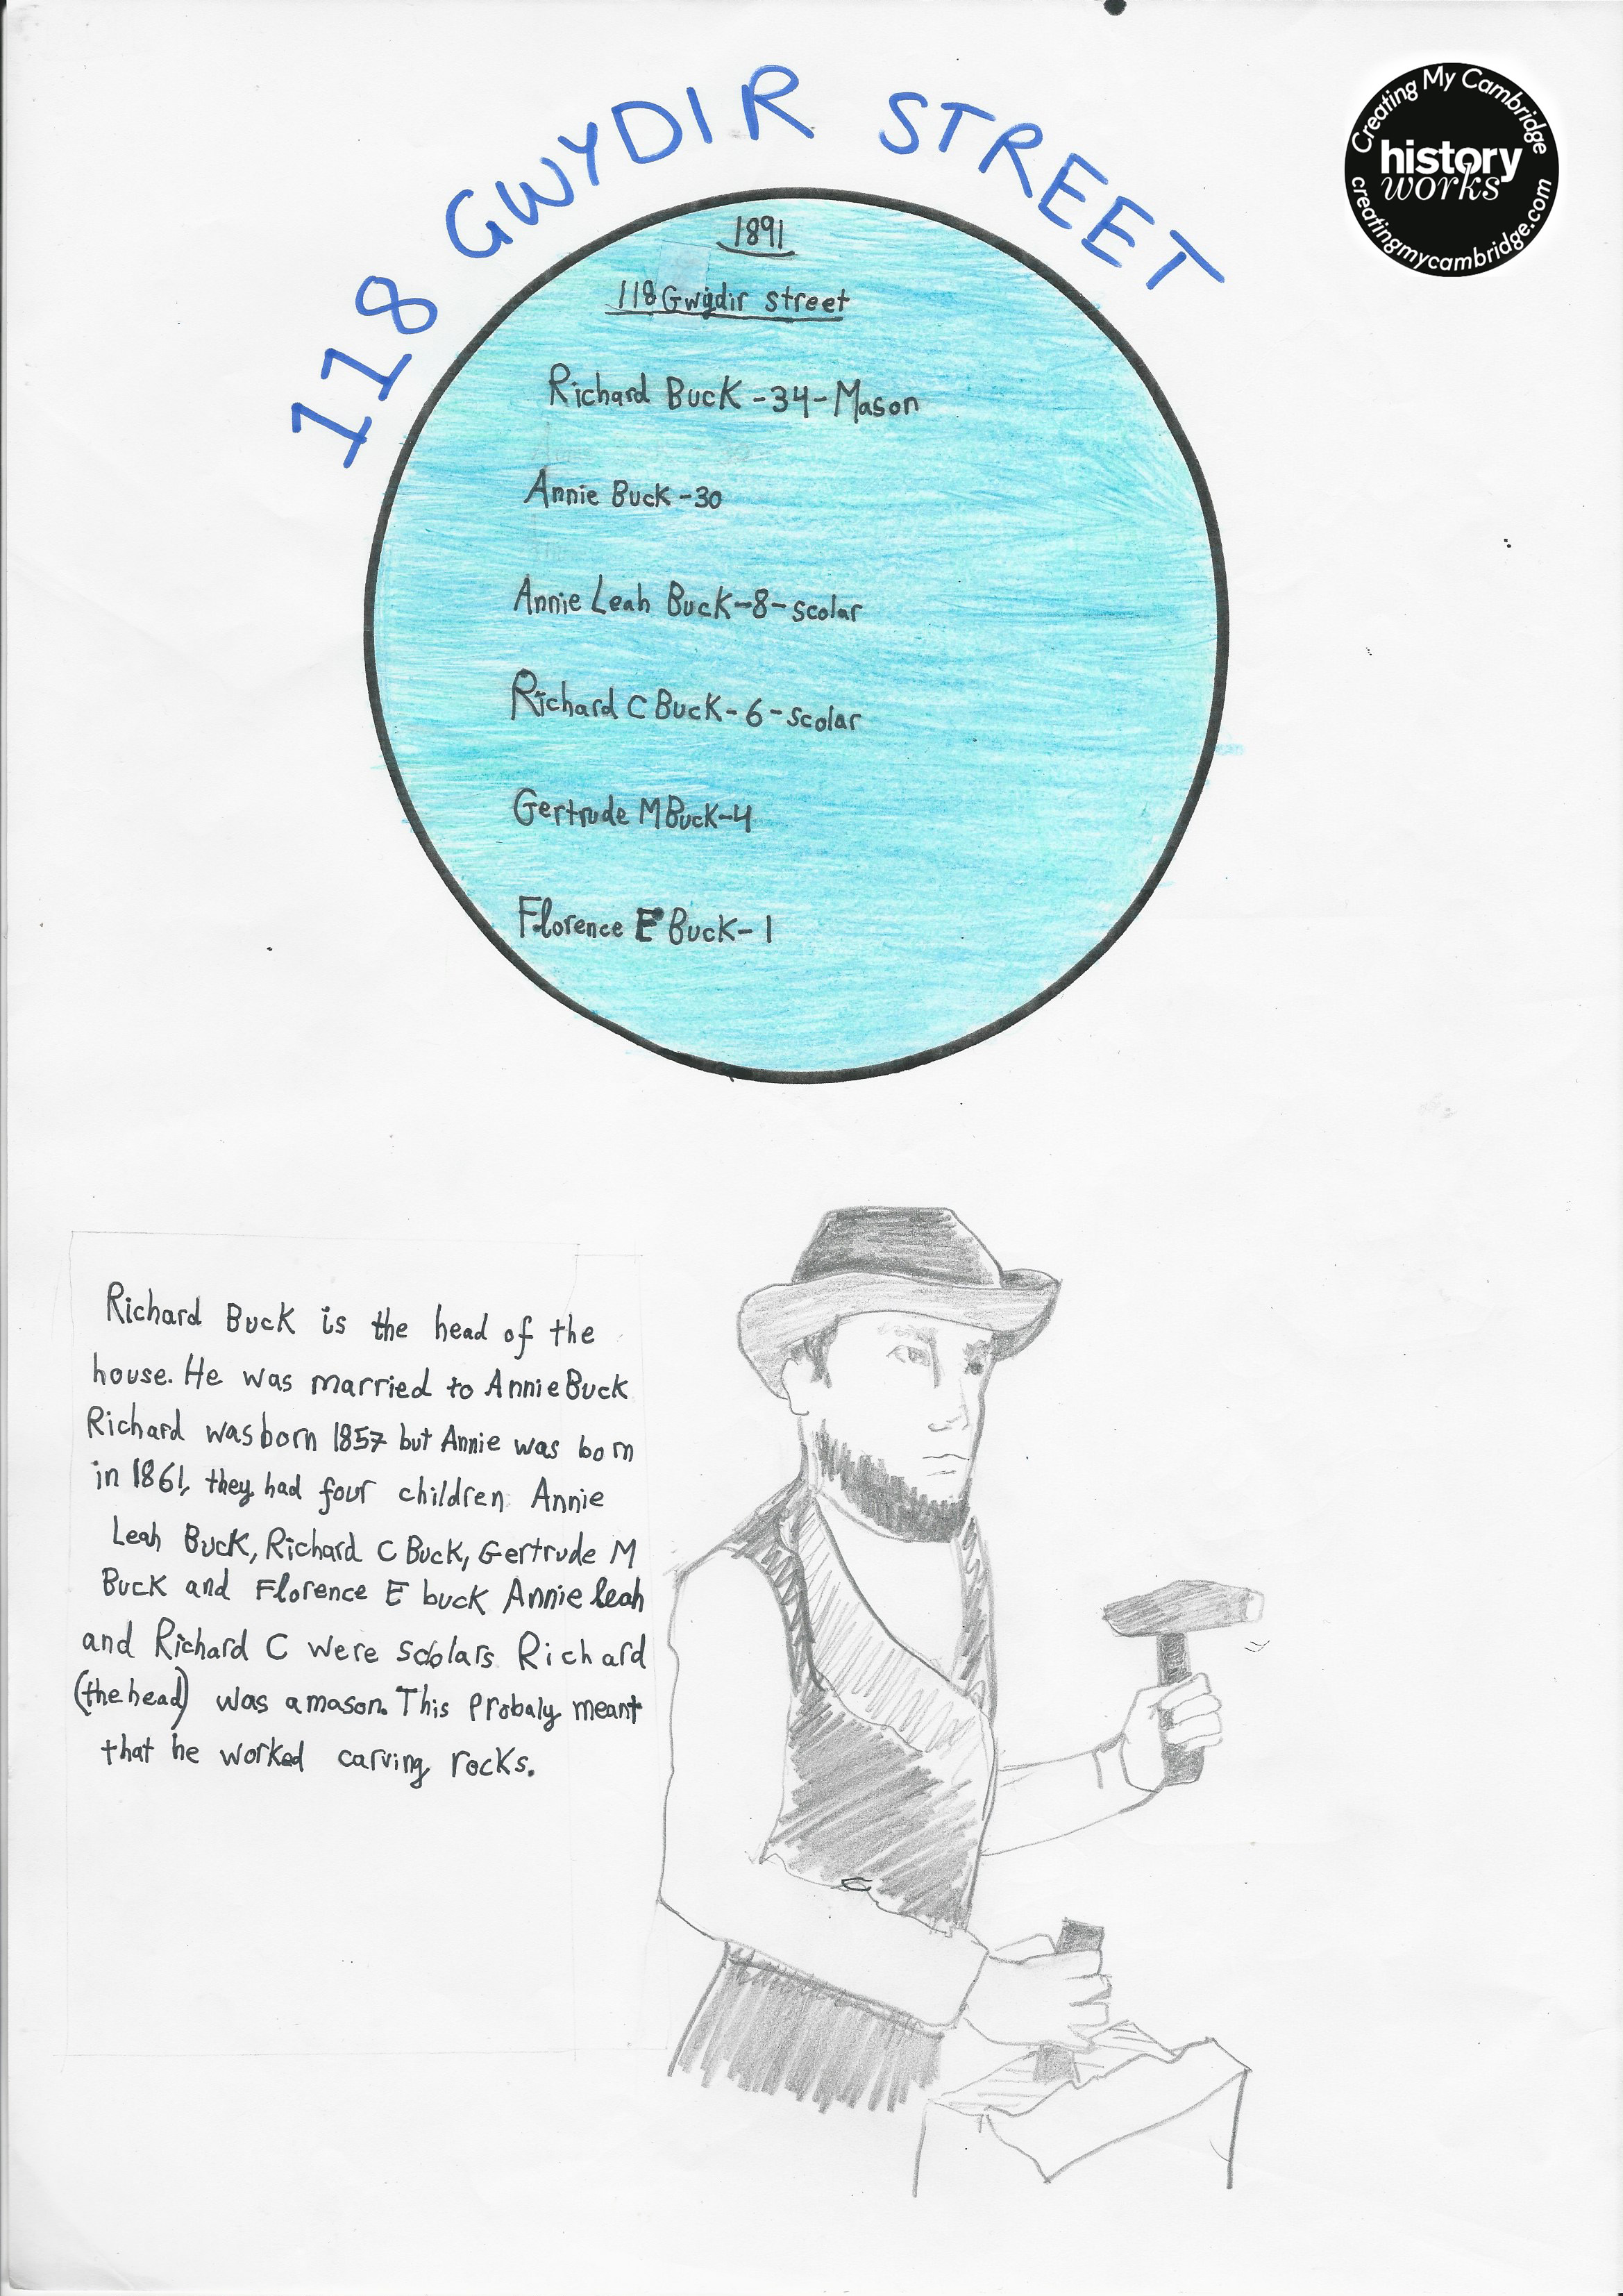 118 GWYDIR STREET
Creating My Cambridge
history
works
creatingmycambridge.com
1891
118 Gwydir street
Richard Buck - 34 - Mason
Annie Buck - 30
Annie Leah Buck - 8 - scolar
Richard C Buck - 6 - scolar
Gertrude M Buck - 4
Florence E Buck - 1
Richard Buck is the head of the
house. He was married to Annie Buck
Richard was born 1857 but Annie was born
in 1861, they had four children Annie
Leah Buck, Richard C Buck, Gertrude M
Buck and Florence E buck Annie leah
and Richard C were scolars Richard
(the head) was a mason. This Probaly meant
that he worked carving rocks.